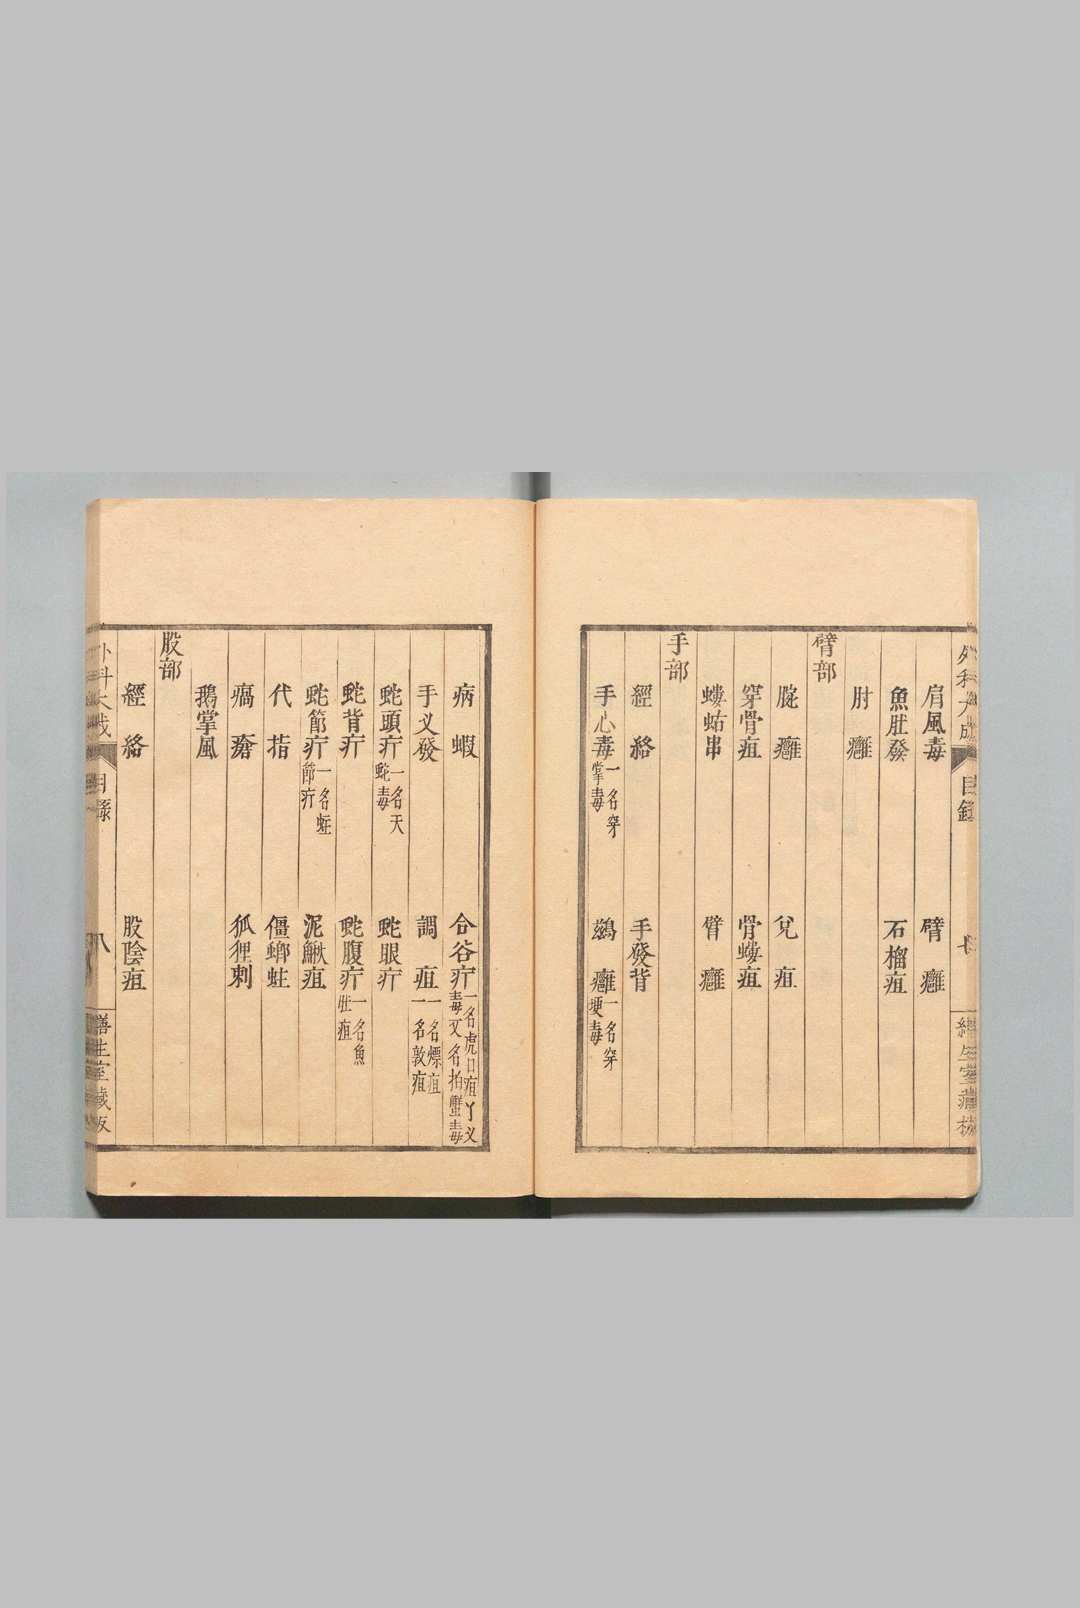 外科大成 目錄 七 善生堂藏板
肩風毒 臂癰
魚肚發 石榴疽
肘癰
臂部
腕癰 兌疽
穿骨疽 骨螻疽
螻蛄串 臂癰
手部
經絡 手發背
手心毒 一名穿掌毒 鷁癰 一名穿埂毒
病蝦 合谷疔 一名虎口疽丫义毒又名拍蟹毒
手义發 調疽 一名燥疽一名敦疽
蛇頭疔 一名天蛇毒 蛇眼疔
蛇背疔 蛇腹疔 一名魚肚疽
蛇節疔 一名蛀節疔 泥鰍疽
代指 僵螂蛀
瘑瘡 狐狸刺
鵝掌風
股部
經絡 股陰疽
外科大成 目錄 八 善生堂藏板